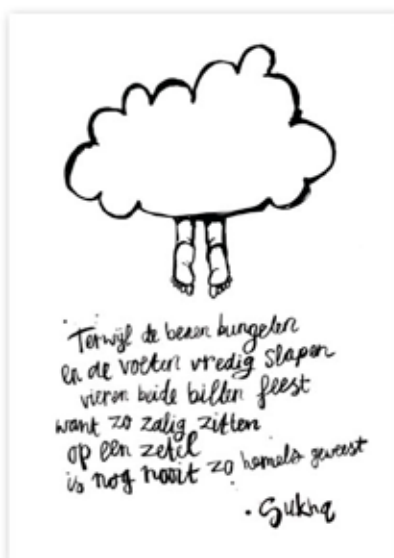 Terwijl de benen bungelen
en de voeten vredig slapen
vieren beide billen feest
want zo zalig zitten
op een zetel
is nog nooit zo hemels geweest
· Sukha